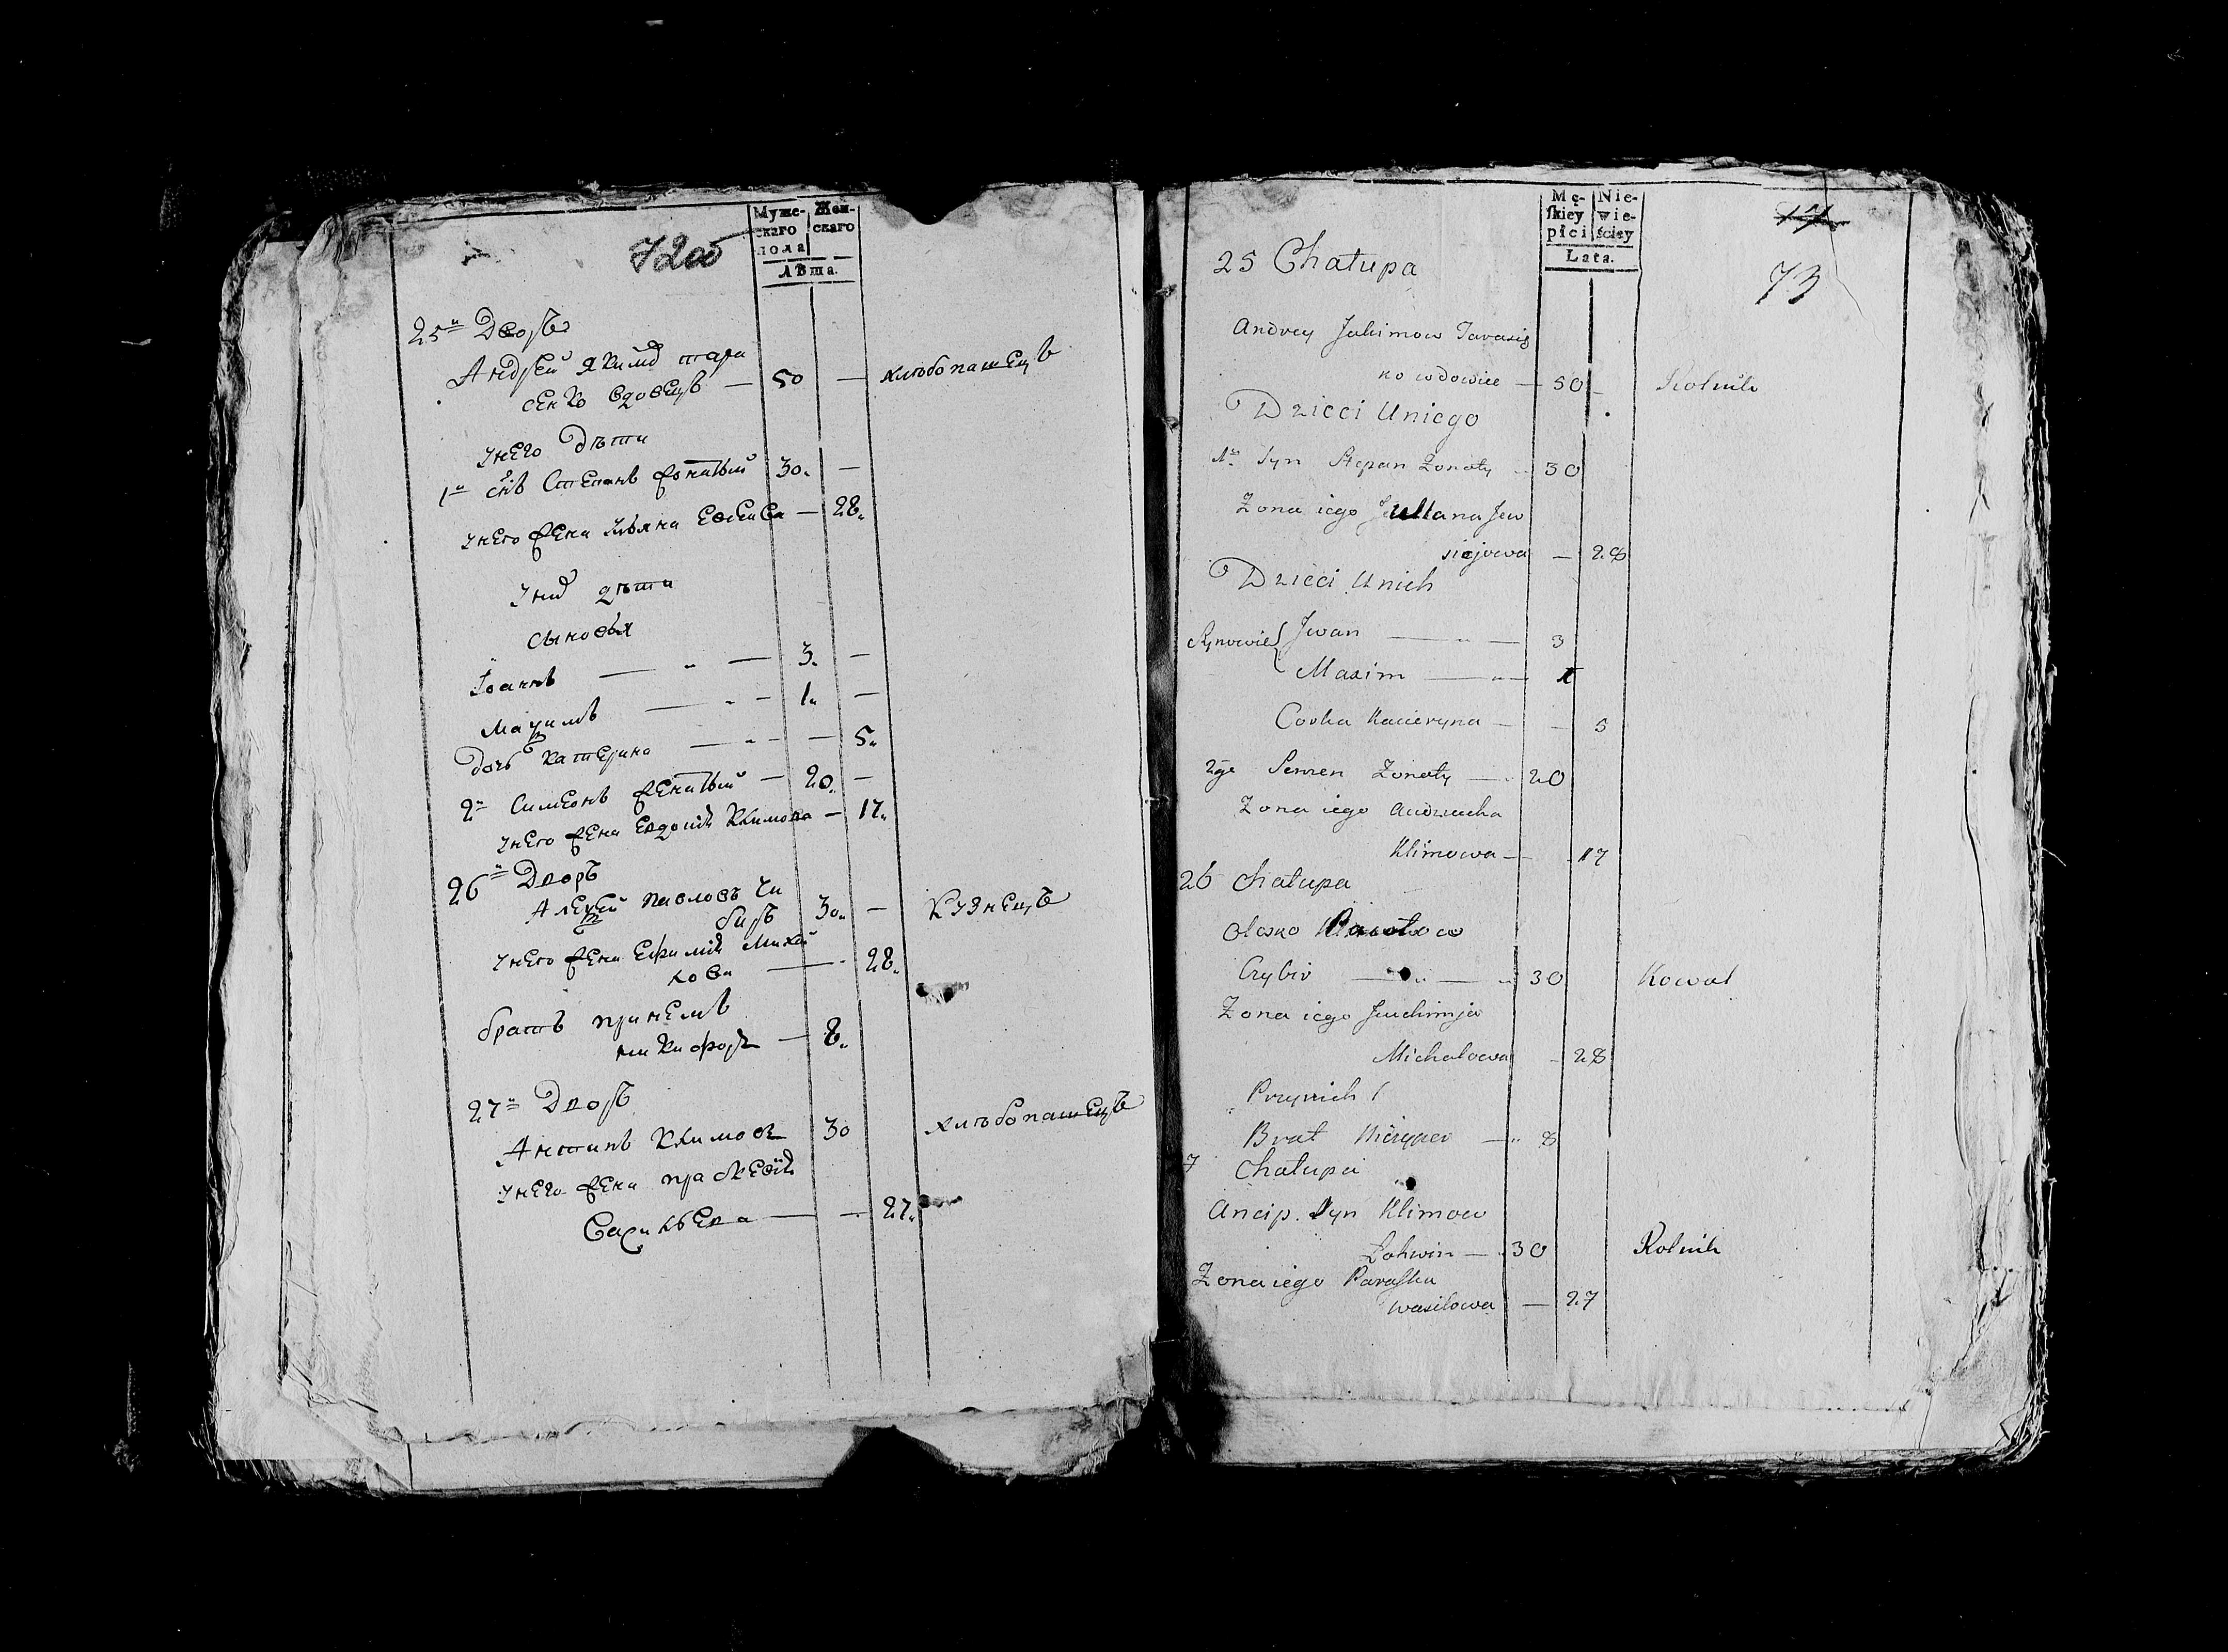 72об
Муже-
скаго
пола
Жен-
скаго
Лѣта.
25й Дворъ
Андрей Якимов тара
сенко вдовецъ — 50 — хлѣбопашецъ
у него дѣти
1й снъ Степанъ женатый 30. —
у него жена Ульяна Евсеева — 28.
у них дѣти
сыновья
Іоаннъ — „ — 3. —
Маѯимъ — „ - 1. —
дочь Катерина — „ - — 5.
2й Симеонъ женатый — 20. —
у него жена Евдокия Климова — 17.
26й Дворъ
Алеѯей Павловъ Чи
биръ 30. — Кузнецъ
у него жена Ефимия Михай
лова — 28.
братъ при немъ
никифоръ — 8.
27й Дворъ
Антипъ Климовъ 30 хлѣбопашецъ
у него жена праскевия
Васильева — — 27.
Mę-
skiey
płci
Nie-
wie-
ściey
Lata.
73
25 Chałupa
Andrey Jakimow Tarasię
ko wdowiec — 50 — Rolnik
Dzieci Uniego
1y Syn Stepan Żonaty — 30
Żona iego Jullana Jew
siejowa — 28
Dzieci Unich
Synowie { Jwan — „ — 3
Maxim — „ — 1
Corka Kacieryna — — 5
2gi Semen Żonaty — 20
Żona iego
Klimowa — 17
26 Chałupa
Olexo Pawłow
Czybir — „ — „ 30 Kowal
Żona iego Jeuchimja
Michałowa — 28
Przynich /
Brat — „ 8
7 Chałupa
Ancip. Syn Klimow
Łohwin — 30 Rolnik
Żona iego Paraska
wasilowa — 27